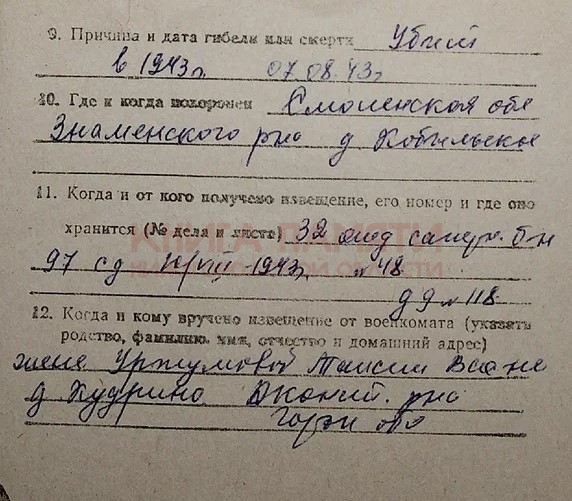 9. Причина и дата гибели или смерти Убит
в 1943г. 07.08.43г
10. Где и когда похоронен Смоленская обл
Знаменского рна д Кобыльское
11. Когда и от кого получено извещение, его номер и где оно
хранится (№ дела и листа) 32 отд сапер. б-н
97 сд 1943г. №48
КНИГА ПАМЯТИ
ОБЛАСТИ
д д №118
12. Когда и кому вручено извещение от военкомата (указать
родство, фамилию, имя, отчество и домашний адрес)
жене Уржумовой Таисии
д Кудрино рна
Горьк обл